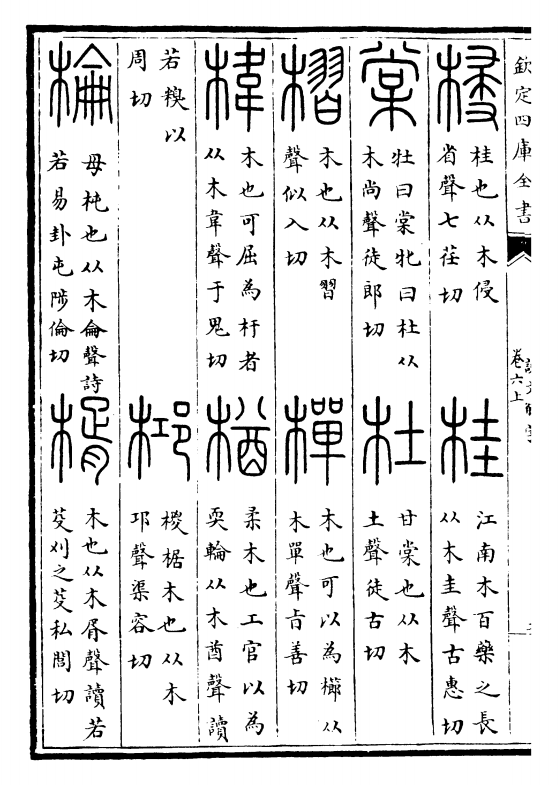 欽定四庫全書
卷六上
梫
桂也从木侵
省聲七荏切
桂
江南木百藥之長
从木圭聲古惠切
棠
牡曰棠牝曰杜从
木尚聲徒郎切
杜
甘棠也从木
土聲徒古切
槢
木也从木習
聲似入切
樿
木也可以為櫛从
木單聲㫖善切
椲
木也可屈為杅者
从木韋聲于鬼切
楢
柔木也工官以為
耎輪从木酋聲讀
若糗以
周切
桏
椶椐木也从木
邛聲渠容切
棆
母杶也从木侖聲詩
若易卦屯陟倫切
楈
木也从木胥聲讀若
芟刈之芟私閭切